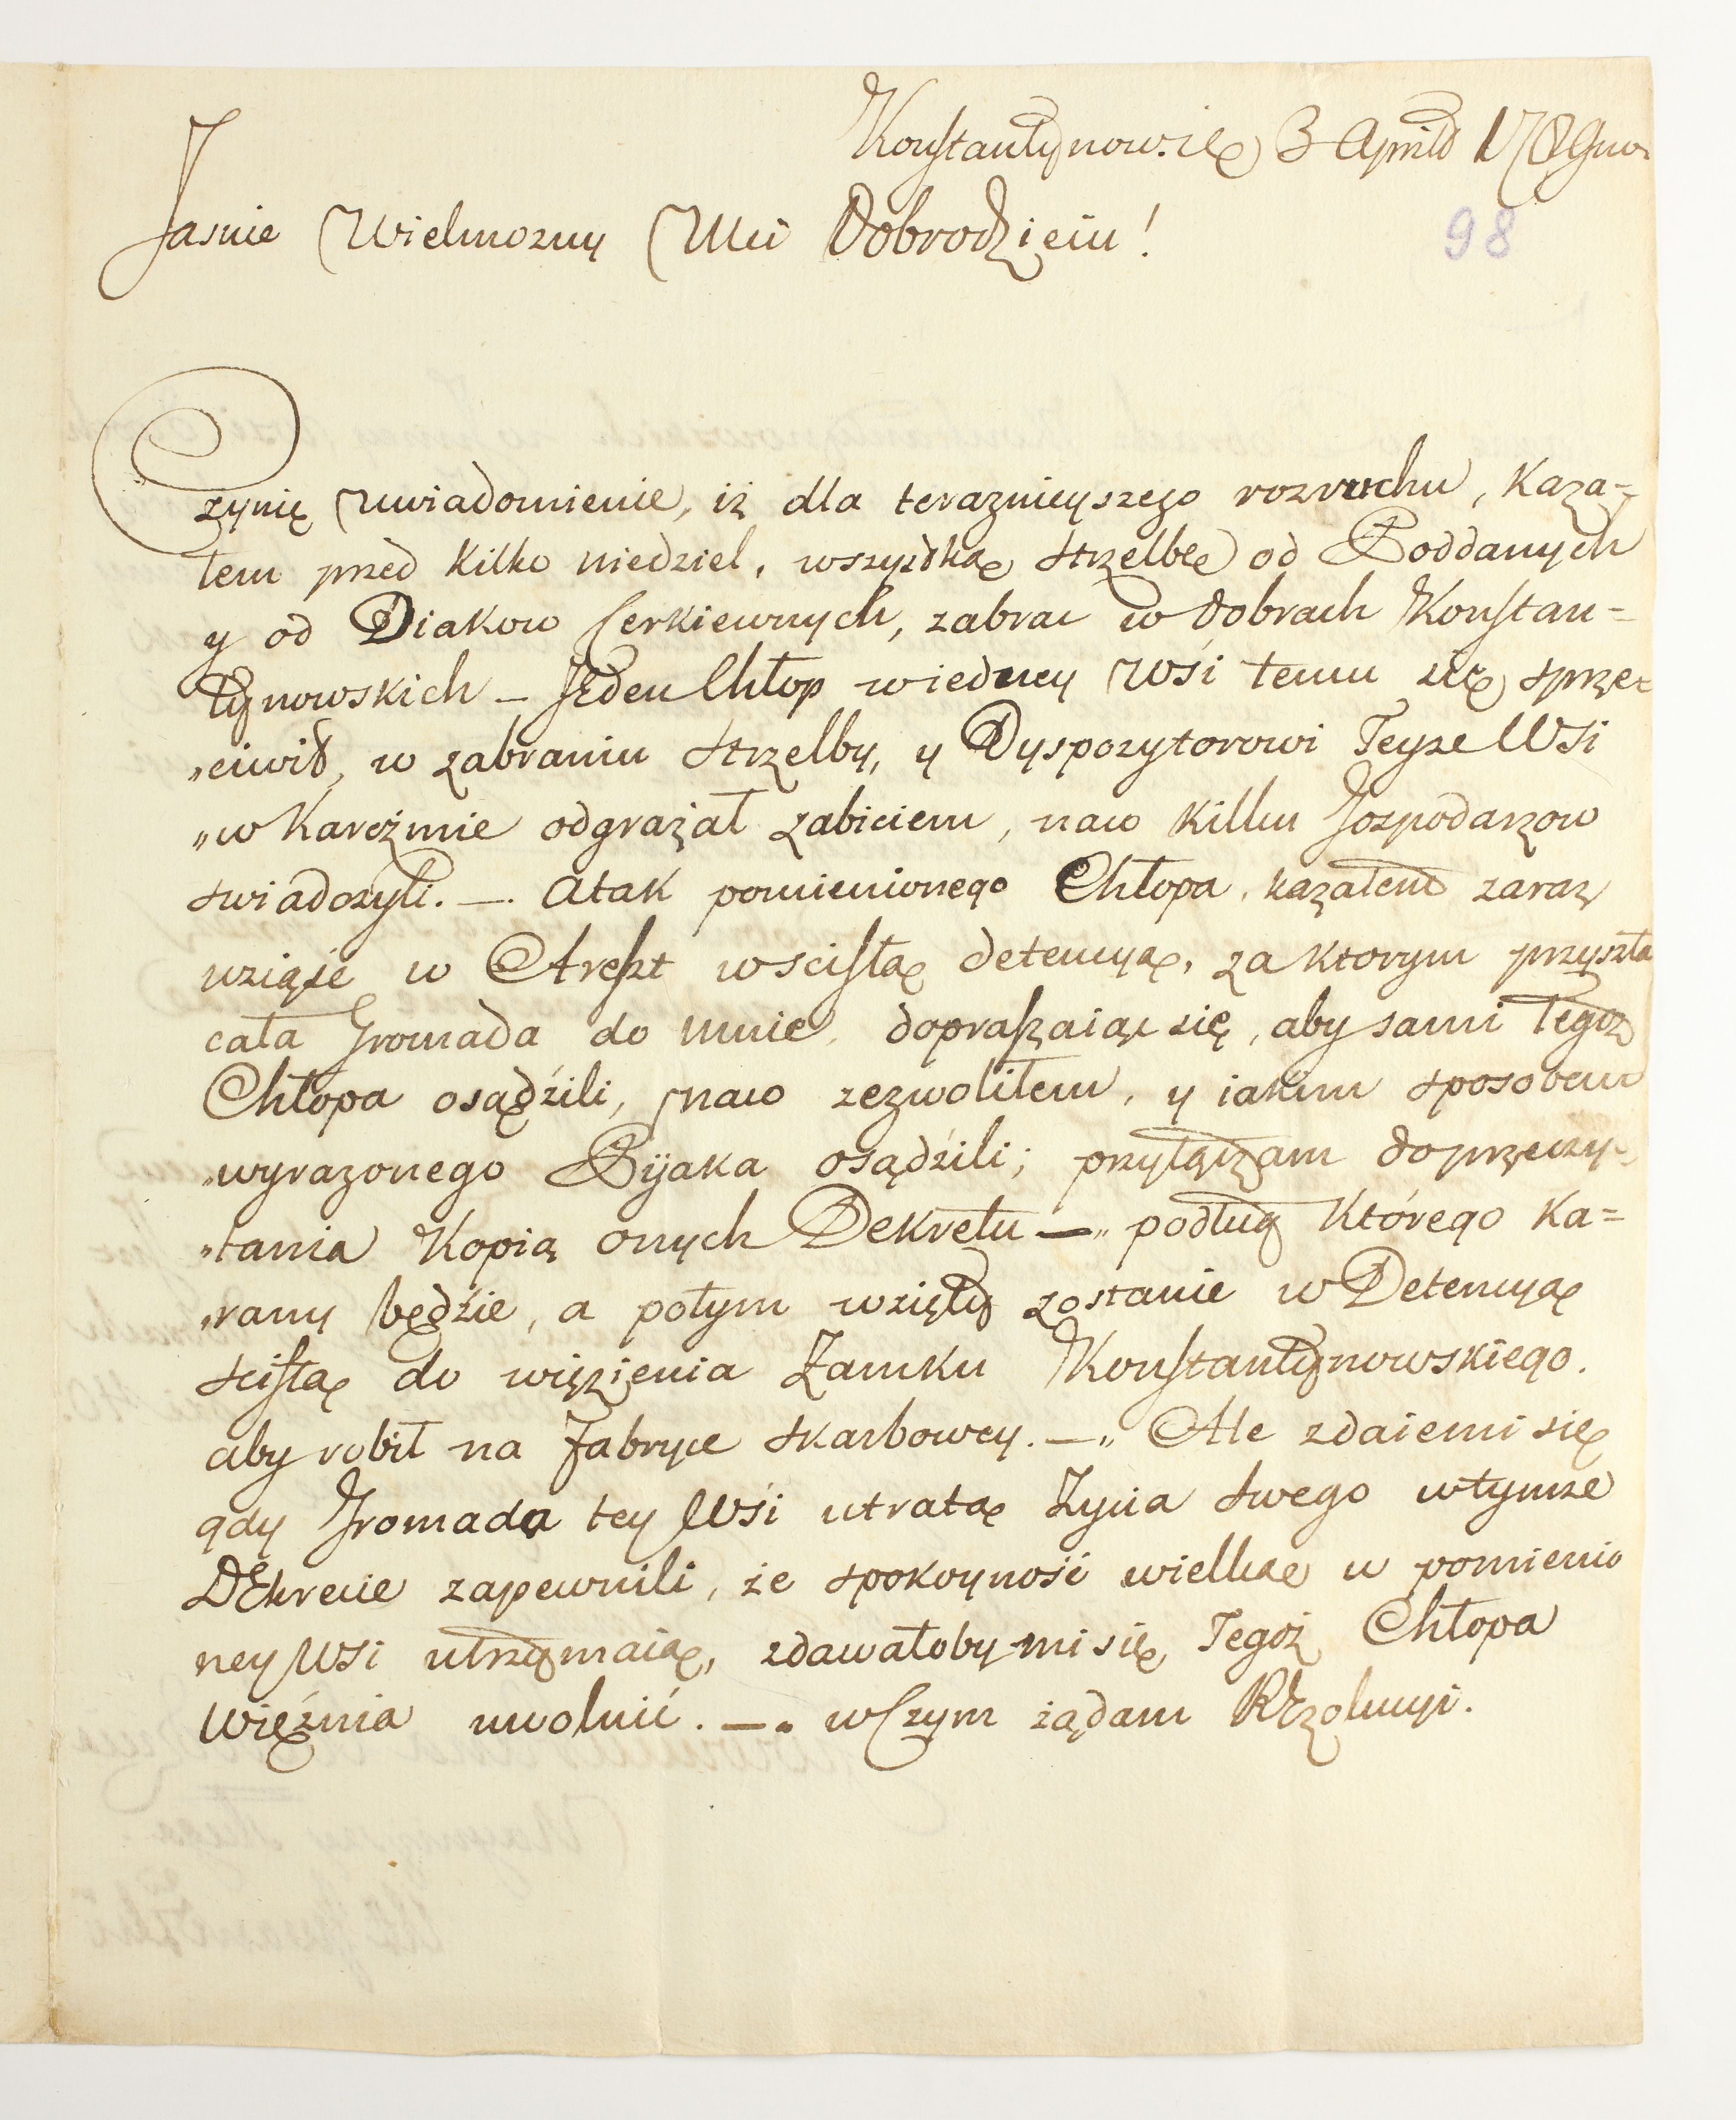 Konstantynow.ie 3 Aprild 1789no.
Jasnie Wielmozny Mci Dobrodzieiu!
98
Czynię Uwiadomienie, iż dla terazniejszego rozruchu, kaza=
łem przed kilko niedziel, wszyzdkę strzelbę od Poddanych
y od Diakow Cerkiewnych, zabrac w dobrach Konstan=
tynowskich – Jeden Chłop wiedney Wsi temu się sprze=
„ciwił, w zabraniu strzelby, y Dyspozytorowi Teyze Wsi
„w Karczmie odgrażał zabiciem, naco kilku Gospodarzow
swiadczyli. —. Atak pomienionego Chłopa, kazałem zaraz
wziąść w Areszt wscisłą detencyą, za ktorym przyszła
cała Gromada do mnie, dopraszaiąc się, aby sami tegoż
Chłopa osądźili, naco zezwoliłem, y iakim sposobem
„wyrazonego Pijaka osądźili; przyłączam doprzeczy-
„tania Kopią onych Dekretu —„ podług którego ka=
„rany będźie, a potym wzięty zostanie w Detencyą
scisłą do więzienia Zamku Konstantynowskiego.
aby robił na Fabryce skarbowey. —„ Ale zdaiemi się
gdy Gromada tey Wsi utratą Zycia swego wtymze
DEkrecie zapewnili, że spokoyność wielką w pomienio
ney Wsi utrzymaią, zdawałoby mi się, Tegoż Chłopa
Więźnia uwolnić. —. wCzym żądam REzolucyi.